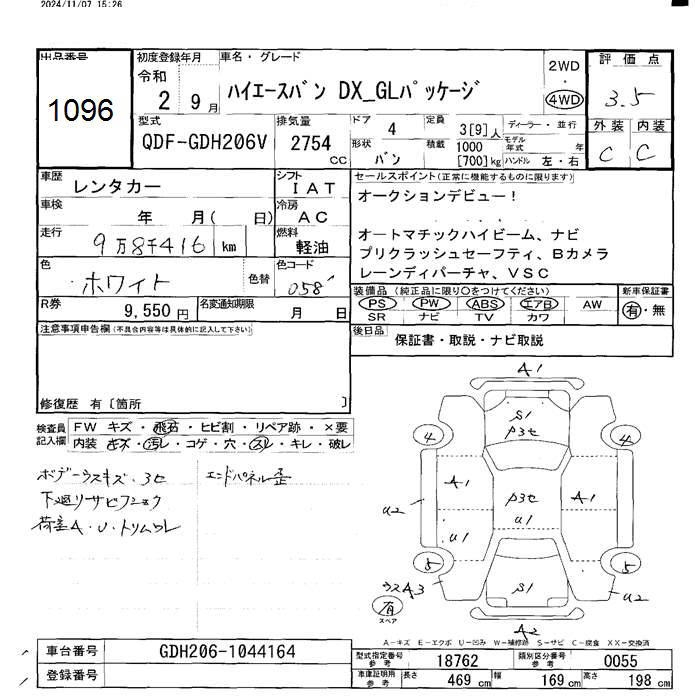 2024/11/07 15:26
出品番号
1096
初度登録年月
令和
2 9月
車名・グレード
ハイエースバン DX_GLパッケージ
2WD
・
4WD
評価点
3.5
外装 内装
C C
型式
QDF-GDH206V
排気量
2754
CC
ドア 4
形状 バン
定員 3[9]人
積載 1000
[700]kg
ディーラー・並行
モデル
年式 年
ハンドル 左・右
車歴
レンタカー
シフト
IAT
車検
年 月( 日)
冷房
AC
走行
9万8千416 km
燃料
軽油
色
ホワイト
色替
色コード
058
R券
9,550円
名変通知期限
月 日
セールスポイント(正常に機能するものに限ります)
オークションデビュー!
オートマチックハイビーム、ナビ
プリクラッシュセーフティ、Bカメラ
レーンディパーチャ、VSC
装備品(純正品に限り○をつけてください)
PS PW ABS エアB AW
SR ナビ TV カワ
新車保証書
有・無
後日品
保証書・取説・ナビ取説
注意事項申告欄(不具合内容等は具体的に記入して下さい)
修復歴 有〔箇所 〕
検査員
記入欄
FW キズ・飛石・ヒビ割・リペア跡・×要
内装 キズ・汚レ・コゲ・穴・スレ・キレ・破レ
ボデーウスキズ・3セ
エンドパネル歪
下廻リサビフショク
荷室A・U・トリムワレ
A1
S1
P3セ
4
4
A1
P3セ
A1
U2
U1
U1
5
5
ウスA3
S1
U2
有
スペア
A2
A-キズ E-エクボ U-凹み W-補修跡 S-サビ C-腐食 XX-交換済
車台番号
GDH206-1044164
登録番号
型式指定番号
参考
18762
類別区分番号
参考
0055
車庫証明用
参考
長さ 469 cm 幅 169 cm 高さ 198 cm